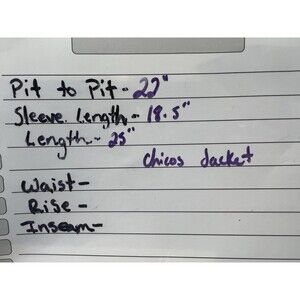 Pit to Pit - 22"
Sleeve Length - 18.5"
Length - 25"
Chicos Jacket
Waist -
Rise -
Inseam -